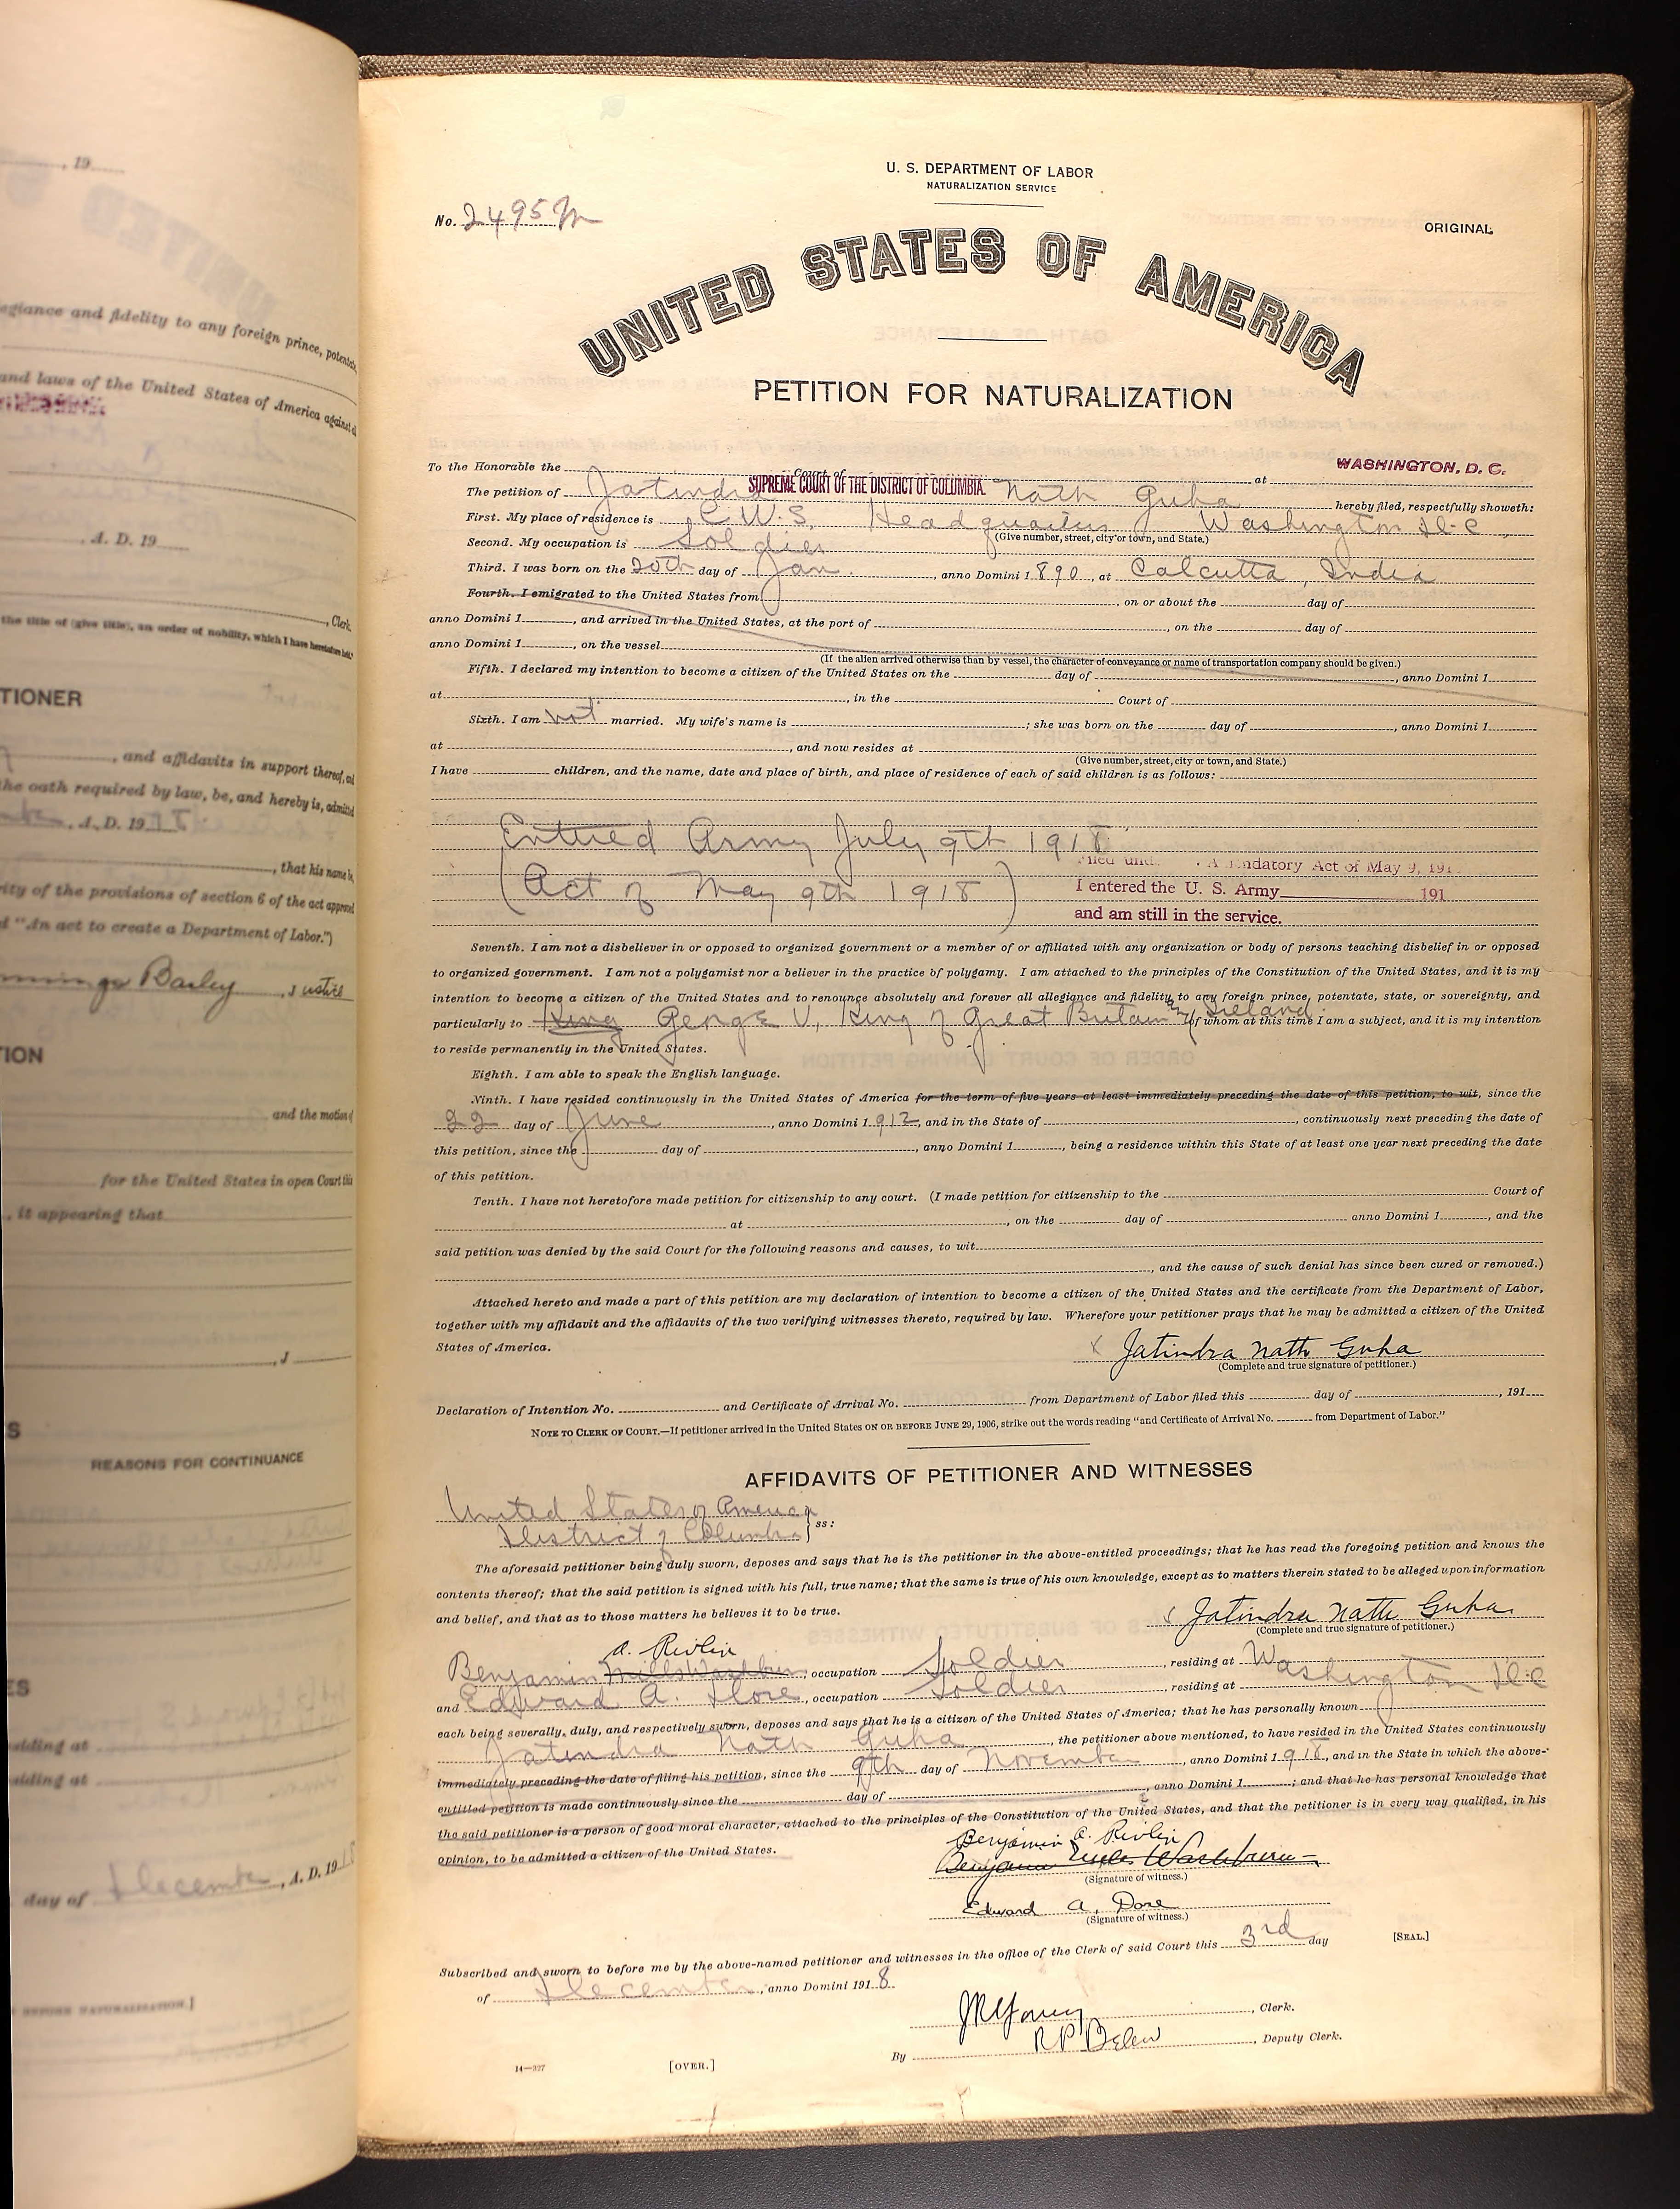 , 19
egiance and fidelity to any foreign prince, potentate,
and laws of the United States of America against al
, A. D. 19
, Clerk.
the title of (give title), an order of nobility, which I have heretofore held.
TIONER
, and affidavits in support thereof, and
the oath required by law, be, and hereby is, admitted
, A. D. 1918
, that his name be,
rity of the provisions of section 6 of the act approved
d "An act to create a Department of Labor.")
Barley, Justice
TION
and the motion of
for the United States in open Court this
, it appearing that
, J
S
REASONS FOR CONTINUANCE
ES
siding at
siding at
day of December, A. D. 19
BEFORE NATURALIZATION.]
U. S. DEPARTMENT OF LABOR
NATURALIZATION SERVICE
No. 2495 M
ORIGINAL
UNITED STATES OF AMERICA
PETITION FOR NATURALIZATION
To the Honorable the Court of SUPREME COURT OF THE DISTRICT OF COLUMBIA. at WASHINGTON, D. C.
The petition of Jatindra Nath Guha hereby filed, respectfully showeth:
First. My place of residence is C.W.S. Headquarters Washington D.C.
(Give number, street, city or town, and State.)
Second. My occupation is Soldier
Third. I was born on the 20th day of Jan., anno Domini 1890, at Calcutta, India
Fourth. I emigrated to the United States from, on or about the day of
anno Domini 1, and arrived in the United States, at the port of, on the day of
anno Domini 1, on the vessel
(If the alien arrived otherwise than by vessel, the character of conveyance or name of transportation company should be given.)
Fifth. I declared my intention to become a citizen of the United States on the day of, anno Domini 1
at, in the Court of
Sixth. I am not married. My wife's name is; she was born on the day of, anno Domini 1
at, and now resides at
(Give number, street, city or town, and State.)
I have children, and the name, date and place of birth, and place of residence of each of said children is as follows:
Entered Army July 9th 1918
(Act of May 9th 1918)
Filed und A Mandatory Act of May 9, 191
I entered the U. S. Army 191
and am still in the service.
Seventh. I am not a disbeliever in or opposed to organized government or a member of or affiliated with any organization or body of persons teaching disbelief in or opposed
to organized government. I am not a polygamist nor a believer in the practice of polygamy. I am attached to the principles of the Constitution of the United States, and it is my
intention to become a citizen of the United States and to renounce absolutely and forever all allegiance and fidelity to any foreign prince, potentate, state, or sovereignty, and
particularly to King George V, King of Great Britain & Ireland of whom at this time I am a subject, and it is my intention
to reside permanently in the United States.
Eighth. I am able to speak the English language.
Ninth. I have resided continuously in the United States of America for the term of five years at least immediately preceding the date of this petition, to wit, since the
22 day of June, anno Domini 1912, and in the State of, continuously next preceding the date of
this petition, since the day of, anno Domini 1, being a residence within this State of at least one year next preceding the date
of this petition.
Tenth. I have not heretofore made petition for citizenship to any court. (I made petition for citizenship to the Court of
at, on the day of anno Domini 1, and the
said petition was denied by the said Court for the following reasons and causes, to wit
, and the cause of such denial has since been cured or removed.)
Attached hereto and made a part of this petition are my declaration of intention to become a citizen of the United States and the certificate from the Department of Labor,
together with my affidavit and the affidavits of the two verifying witnesses thereto, required by law. Wherefore your petitioner prays that he may be admitted a citizen of the United
States of America.
x Jatindra Nath Guha
(Complete and true signature of petitioner.)
Declaration of Intention No. and Certificate of Arrival No. from Department of Labor filed this day of, 191
NOTE TO CLERK OF COURT.—If petitioner arrived in the United States ON OR BEFORE JUNE 29, 1906, strike out the words reading "and Certificate of Arrival No. from Department of Labor."
AFFIDAVITS OF PETITIONER AND WITNESSES
United States of America
District of Columbia } ss:
The aforesaid petitioner being duly sworn, deposes and says that he is the petitioner in the above-entitled proceedings; that he has read the foregoing petition and knows the
contents thereof; that the said petition is signed with his full, true name; that the same is true of his own knowledge, except as to matters therein stated to be alleged upon information
and belief, and that as to those matters he believes it to be true.
x Jatindra Nath Guha
(Complete and true signature of petitioner.)
A. Rivlin
Benjamin Mills Washburn, occupation Soldier, residing at Washington D.C
and Edward A. Dore, occupation Soldier, residing at
each being severally, duly, and respectively sworn, deposes and says that he is a citizen of the United States of America; that he has personally known
Jatindra Nath Guha, the petitioner above mentioned, to have resided in the United States continuously
immediately preceding the date of filing his petition, since the 9th day of November, anno Domini 1918, and in the State in which the above-
entitled petition is made continuously since the day of, anno Domini 1; and that he has personal knowledge that
the said petitioner is a person of good moral character, attached to the principles of the Constitution of the United States, and that the petitioner is in every way qualified, in his
opinion, to be admitted a citizen of the United States.
Benjamin A. Rivlin
Benjamin Mills Washburn
(Signature of witness.)
Edward A. Dore
(Signature of witness.)
Subscribed and sworn to before me by the above-named petitioner and witnesses in the office of the Clerk of said Court this 3rd day [SEAL.]
of December, anno Domini 1918.
J R Young, Clerk.
By R P Belew, Deputy Clerk.
14—327
[OVER.]